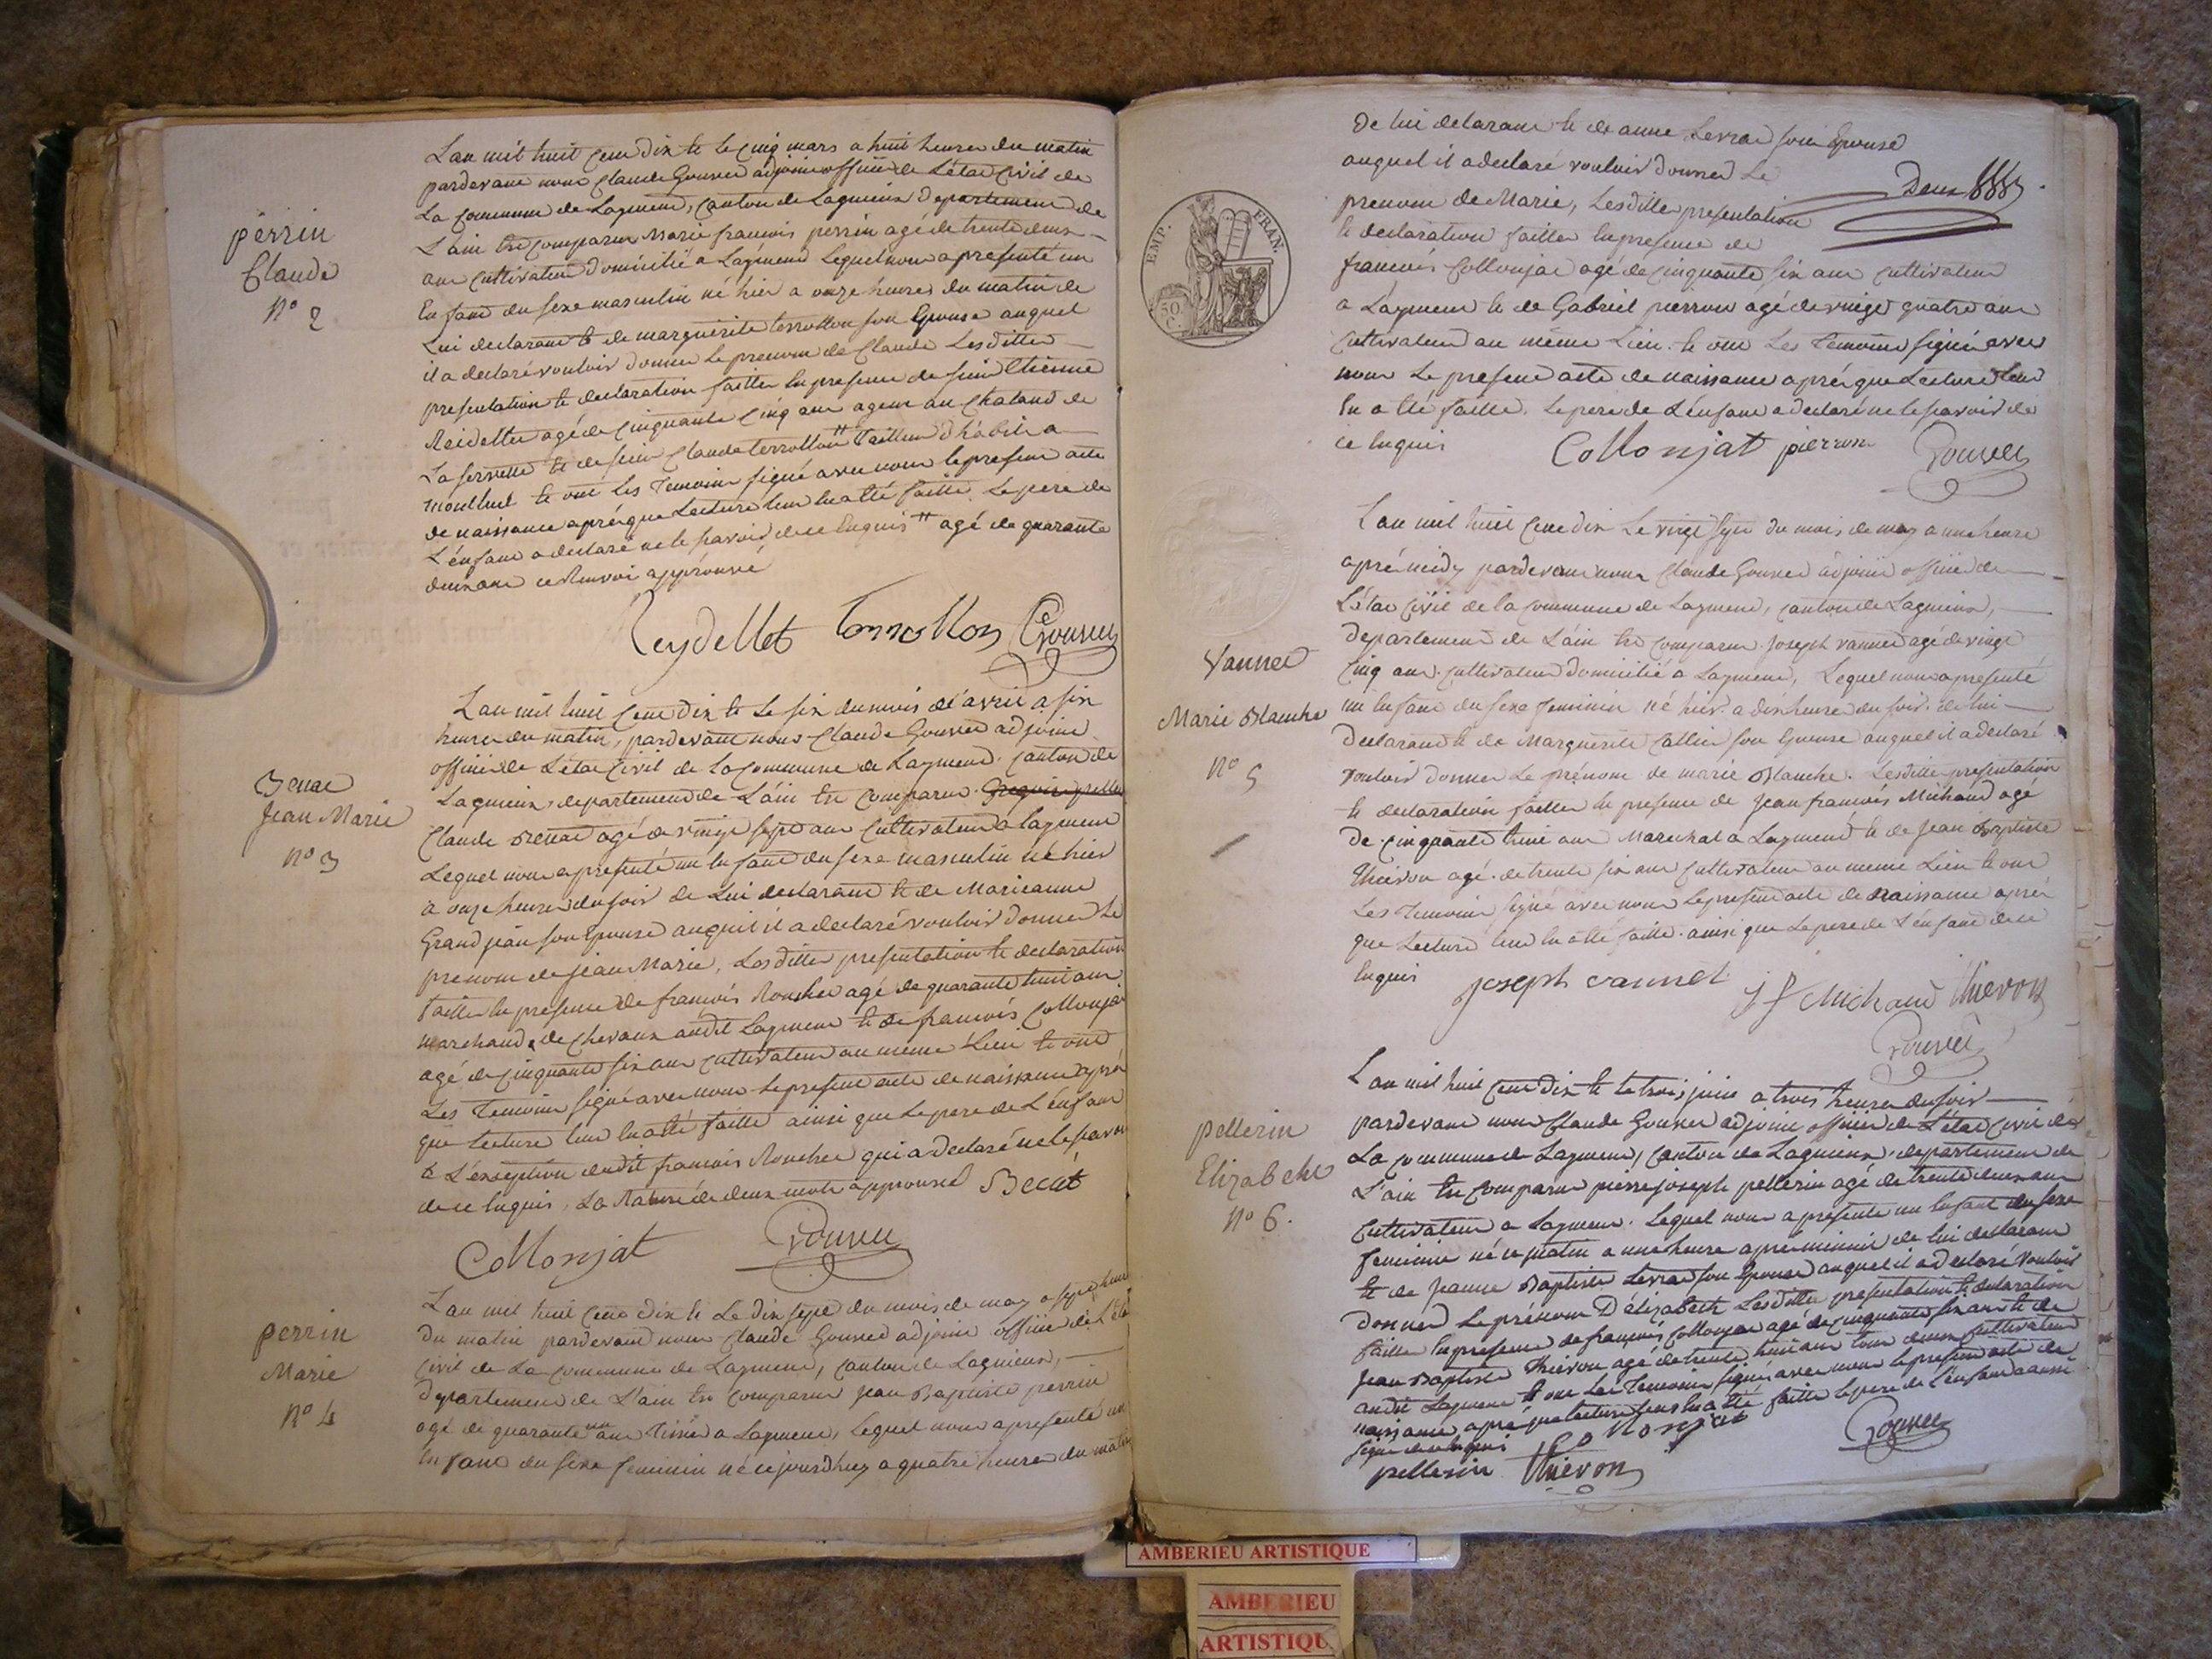 perrin
Claude
N° 2
L'an mil huit cent dix et le cinq mars a huit heures du matin
pardevant nous Claude Gouvet adjoint officier de L'état Civil de
La Commune de Lagment, Canton de Lagnieux Departement de
L'ain est comparu Marie francois perrin agé de trente deux
ans Cultivateur domicilié a Lagment Lequel nous a presenté un
Enfant du sexe masculin né hier a onze heures du matin de
Lui declarant et de marguerite terrollon son Epouse auquel
il a declaré vouloir donner le prenom de Claude Lesdittes
presentation et declaration faittes en presence de sieur Etienne
Reidellet agé de Cinquante Cinq ans agent au Chataud de
La servette et de sieur Claude terrollon # Tailleur d'habits a
montluel et ont Les Temoins signé avec nous le present acte
de naissance aprés que Lecture leur en a été faitte. Le pere de
L'énfant a declaré ne le savoir de ce enquis # agé de quarante
deux ans ce Renvoi approuvé
Reydellet terrollon Gouvet
Jean Marie
N° 3
L'an mil huit cent dix et Le six du mois d'avril a six
heures du matin, pardevant nous Claude Gouvet adjoint
officier de L'état Civil de La Commune de Lagment, Canton de
Lagnieux, departement de L'ain est comparu
Claude agé de vingt sept ans Cultivateur a Lagment
Lequel nous a presenté un Enfant du sexe masculin né hier
a onze heures du soir de Lui declarant et de Marieanne
Grandjean son Epouse auquel il a declaré vouloir donner Le
prenom de jean Marie, Lesdittes presentation et declaration
faittes en presence de francois Roucher agé de quarante huit ans
marchand de Chevaux audit Lagment et de francois Collonjat
agé de cinquante six ans cultivateur au même Lieu et ont
Les Temoins signé avec nous Le present acte de naissance aprés
que Lecture leur en a été faitte ainsi que Le pere de L'énfant
a L'exseption dudit francois Roucher qui a declaré ne le savoir
de ce enquis, La Rature de deux mots approuvé
Collonjat Gouvet
perrin
Marie
N° 4
L'an mil huit cent dix et Le dix sept du mois de may a sept heures
du matin pardevant nous Claude Gouvet adjoint officier de L'état
Civil de La Commune de Lagment, Canton de Lagnieux,
Departement de L'ain est comparu Jean Baptiste perrin
agé de quarante un ans a Lagment, Lequel nous a presenté un
Enfant du sexe feminin né cejourdhuy a quatre heures du matin
EMP. FRAN.
50 C.
de lui declarant et de anne Levrat son Epouse
auquel il a declaré vouloir donner Le
prenom de Marie, Lesdittes presentation
et declaration faittes en presence de
francois Collonjat agé de Cinquante six ans Cultivateur
a Lagment et de Gabriel pierron agé de vingt quatre ans
Cultivateur au même Lieu. et ont Les Temoins signé avec
nous Le present acte de naissance aprés que Lecture leur
en a été faitte. Le pere de L'énfant a declaré ne le savoir de
ce enquis Collonjat pierron Gouvet
Vannet
Marie Blanche
N° 5
L'an mil huit cent dix Le vingt sept du mois de may a une heure
aprés midy pardevant nous Claude Gouvet adjoint officier de
L'état Civil de la Commune de Lagment, Canton de Lagnieux,
Departement de L'ain est comparu Joseph vannet agé de vingt
Cinq ans Cultivateur domicilié a Lagment, Lequel nous a presenté
un Enfant du sexe feminin né hier a dix heures du soir de lui
Declarant et de Marguerite son Epouse auquel il a declaré
vouloir donner Le prénom de marie Blanche. Lesdittes presentation
et declaration faittes en presence de Jean francois Michaud agé
de cinquante huit ans Marechal a Lagment et de Jean Baptiste
Thievon agé de trente six ans Cultivateur au meme Lieu et ont
Les Temoins signé avec nous Le present acte de naissance aprés
que Lecture leur en a été faitte. ainsi que Le pere de L'énfant de ce
Enquis joseph vannet J f Michaud thievon
Gouvet
pellerin
Elizabeht
N° 6.
L'an mil huit cent dix et le trois juin a trois heures du soir
pardevant nous Claude Gouvet adjoint officier de L'état Civil de
La Commune de Lagment, Canton de Lagnieux, departement de
L'ain est comparu pierre joseph pellerin agé de trente deux ans
Cultivateur a Lagment. Lequel nous a presenté un Enfant du sexe
feminin né ce matin a une heure aprés minuit de lui declarant
et de Jeanne Baptiste Levrat son Epouse auquel il a declaré vouloir
donner Le prénom D'élizabeth Lesdittes presentation et declaration
faittes en presence de francois Collonjat agé de cinquante six ans et de
Jean Baptiste Thievon agé de trente huit ans tous deux Cultivateur
audit Lagment et ont Les Temoins signé avec nous le present acte de
naissance aprés que Lecture leur en a été faitte le pere de L'énfant a aussi
signé de ce enquis Collonjat Gouvet
pellerin thievon
AMBERIEU ARTISTIQUE
AMBERIEU
ARTISTIQU